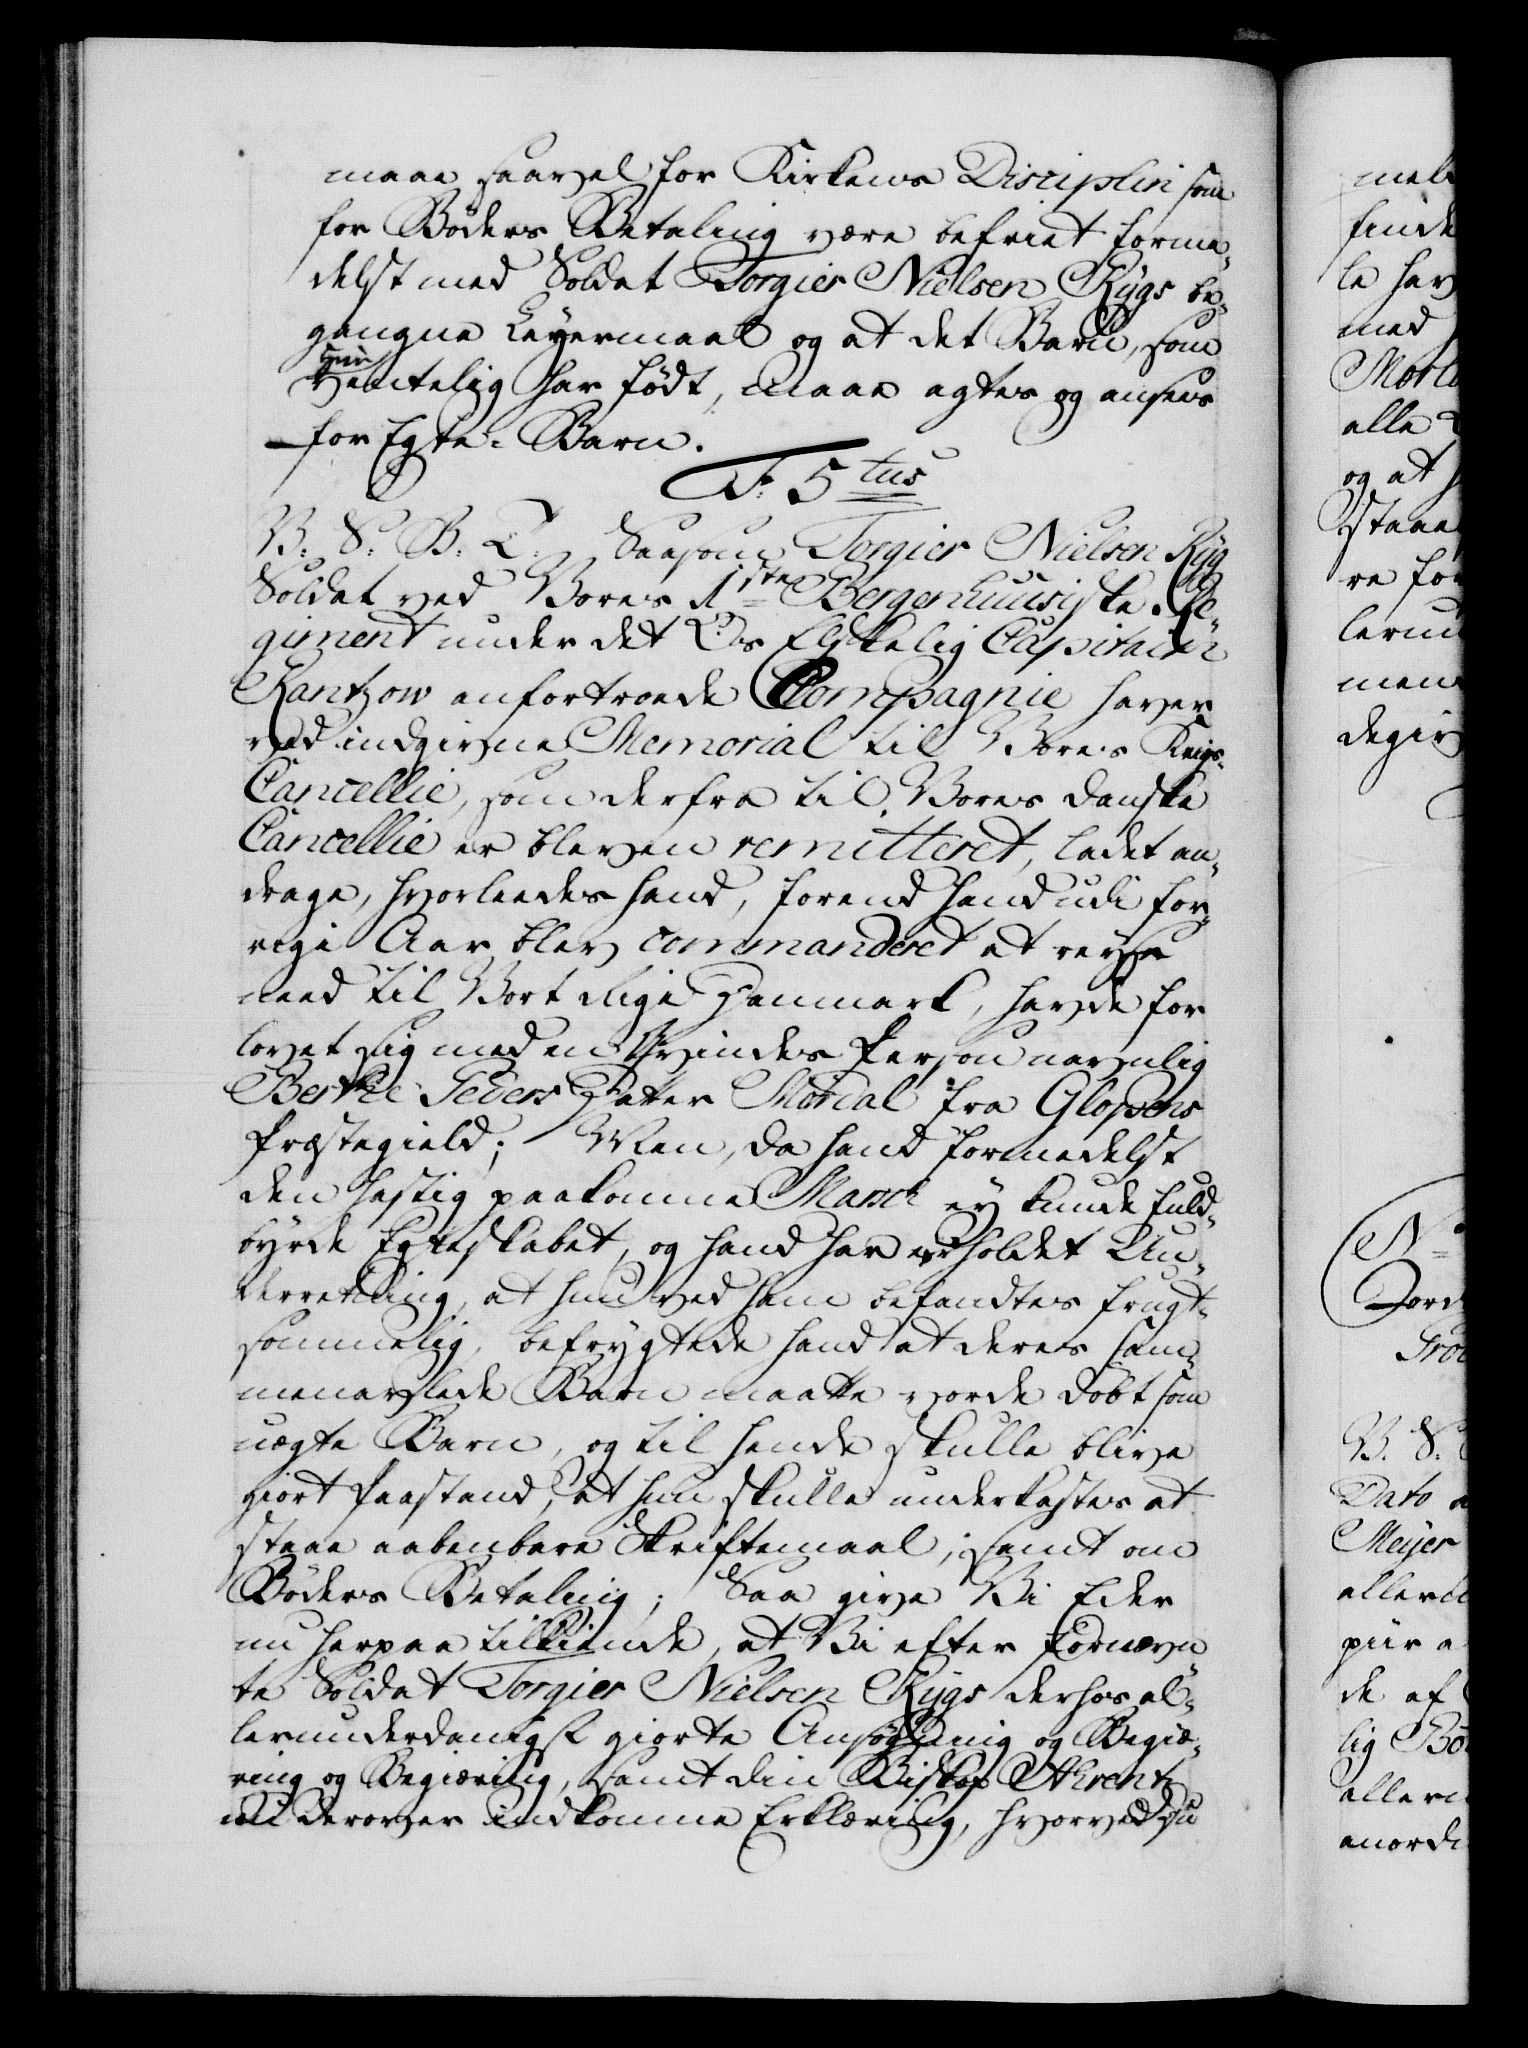 maae saavel for Kirkens Disciplin som
for Bøders Betaling være befriet forme¬
delst med Soldat Torgier Nielsen Rÿgs be¬
gangne Leyermaal og at det Barn, som
hun
ventelig har født, maae agtes og ansees
for Egte-Barn.
F: 5tus
V: S: G: T: Saasom Torgier Nielsen Rÿg
Soldat ved Vores 1ste Bergenhuusiske Re¬
giment under det Os Elskelig Capitain
Kantzow anfortroede Compagnie haver
ved indgivne Memorial til Vores Krigs-
Cancellie, som derfra til Vores danske
Cancellie er bleven remitteret, ladet an¬
drage, hvorleedes hand, forend hand udi for¬
rige Aar blev commanderet at reyse
need til Vort Rige Danmark, havde for
lovet sig med en Qvindes Person navnlig
Berthe Peders Datter Mardal fra Glopens
Præstegield; Men, da hand formedelst
den hastig paakomne March ey kunde fuld¬
byrde Egteskabet, og hand har erholdet Un¬
derretning, at hun ved ham befandtes frugt¬
sommelig, befrygtede hand at deres sam¬
menavlede Barn maatte vorde døbt som
uægte Barn, og til hende skulle blive
giort Paastand, at hun skulle underkastes at
staae aabenbare Skriftemaal, samt om
Bøders Betaling; Saa give Vi Eder
nu herpaa tilkiende, at Vi efter fornævn
te Soldat Torgier Nielsen Rÿgs derhos al¬
lerunderdanigst giorte Ansøgning og Begiæ¬
ring og Begiæring, samt din Biskop Ahrentz
derover indkomne Erklæring, hvorved du